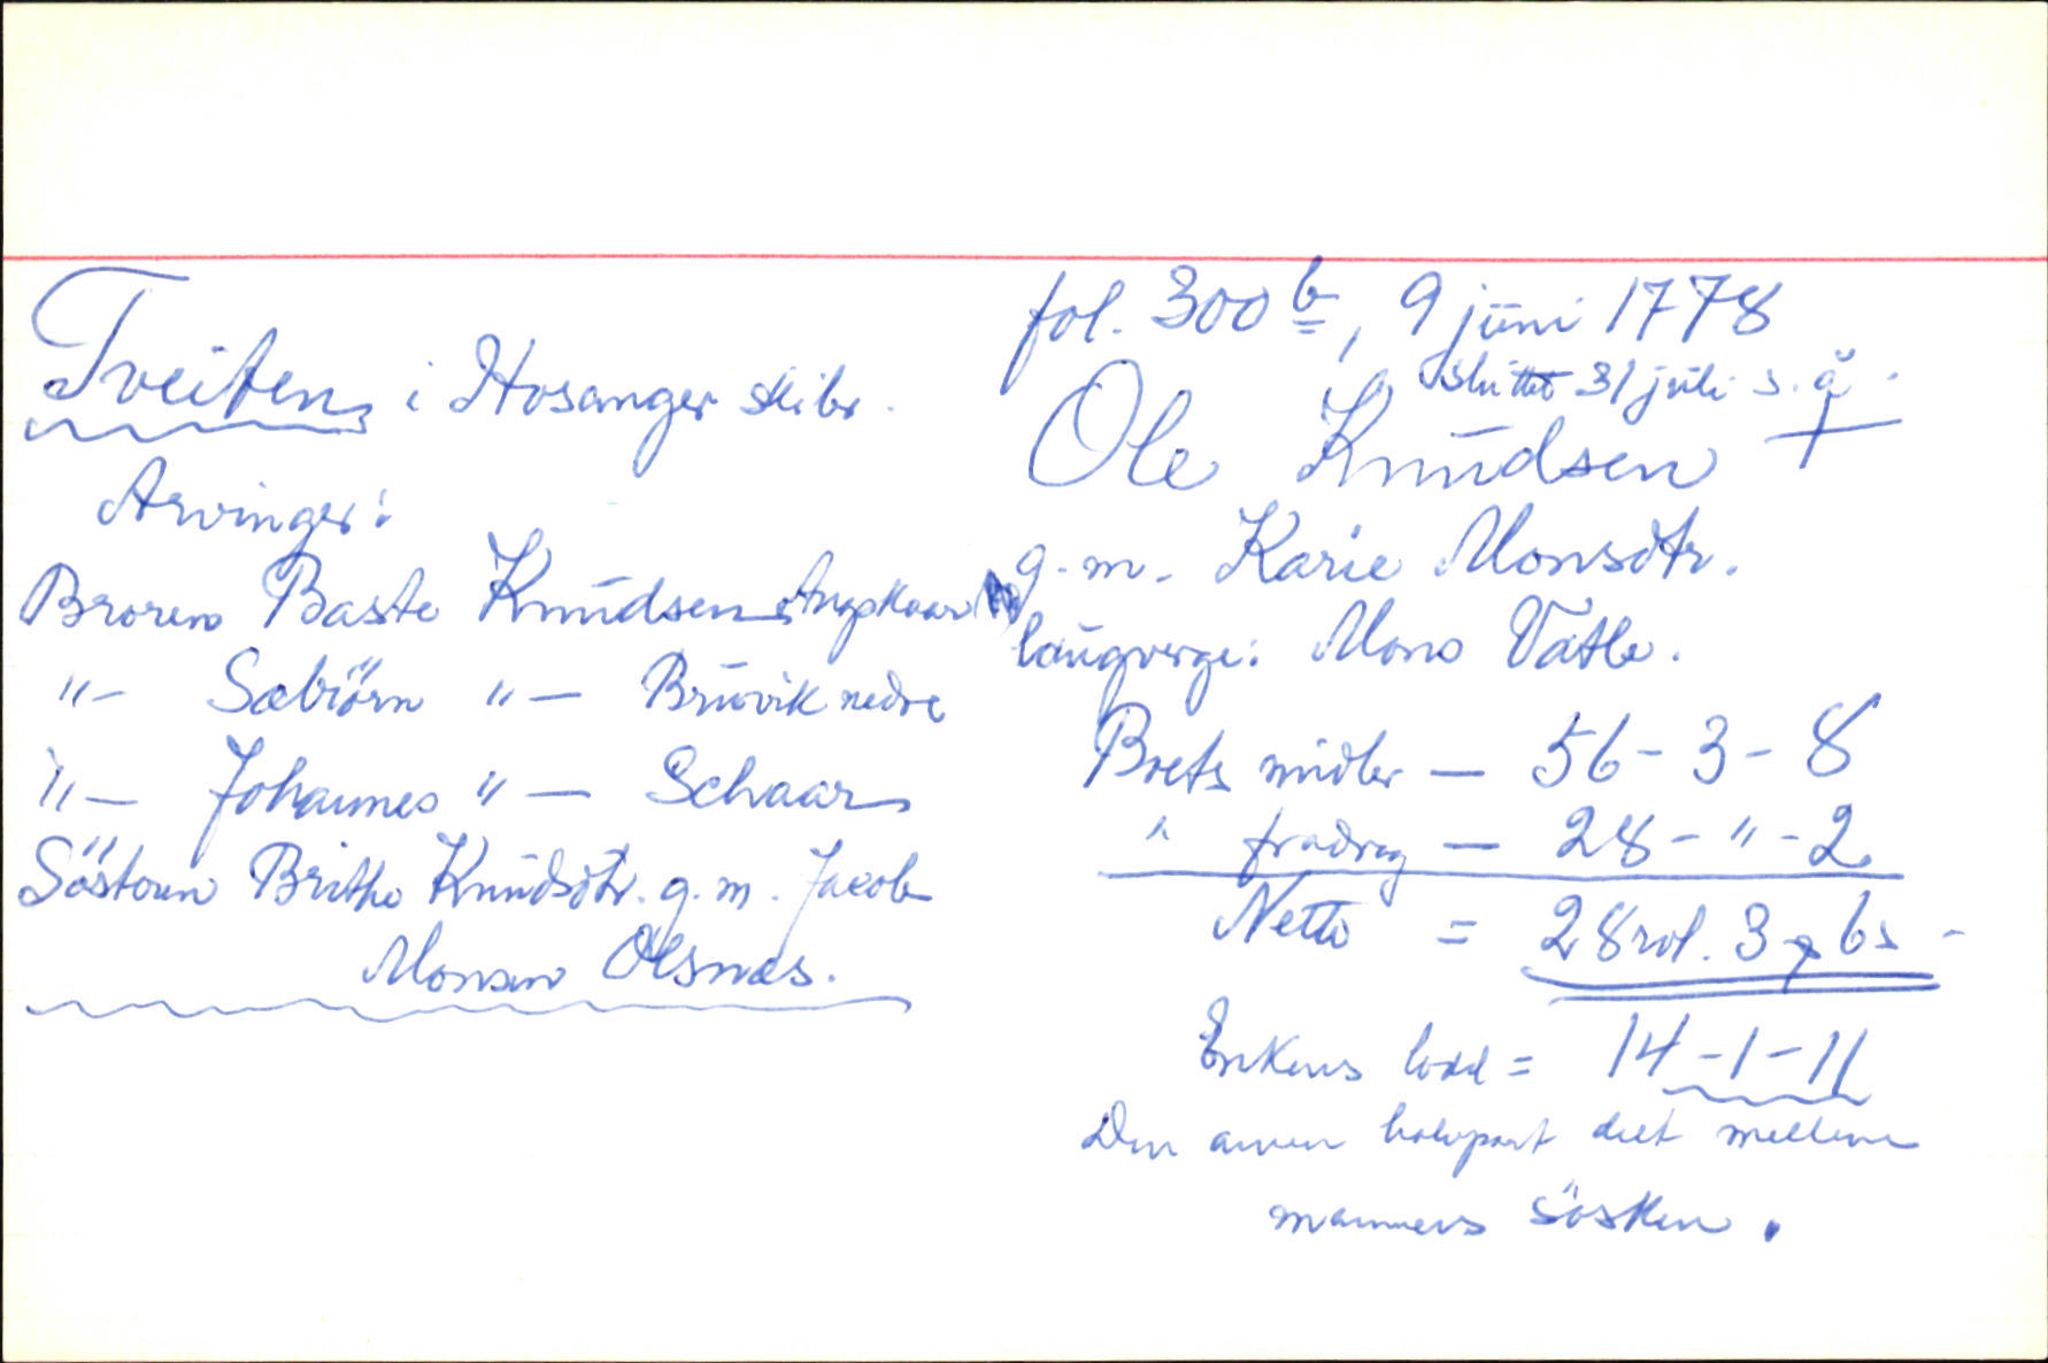 Tveiten i Hosanger skibr.
Arvinger:
Broren Baste Knudsen Angskaar
"- Sæbiörn "- Bruvik nedre
"- Johannes "- Schaar
Söstern Brithe Knudsdtr. g.m. Jacob
Monsen Olsnæs.
fol. 300 b, 9 juni 1778
Sluttet 31 juli s.å.
Ole Knudsen +
g.m. Karie Monsdtr.
laugverge: Mons Vatle.
Boets midler - 56-3-8
" fradrag - 28-"-2
Netto = 28 rdl. 3 6 s -
Enkens lodd = 14-1-11
Den annen halvpart delt mellem
mannens sösken.